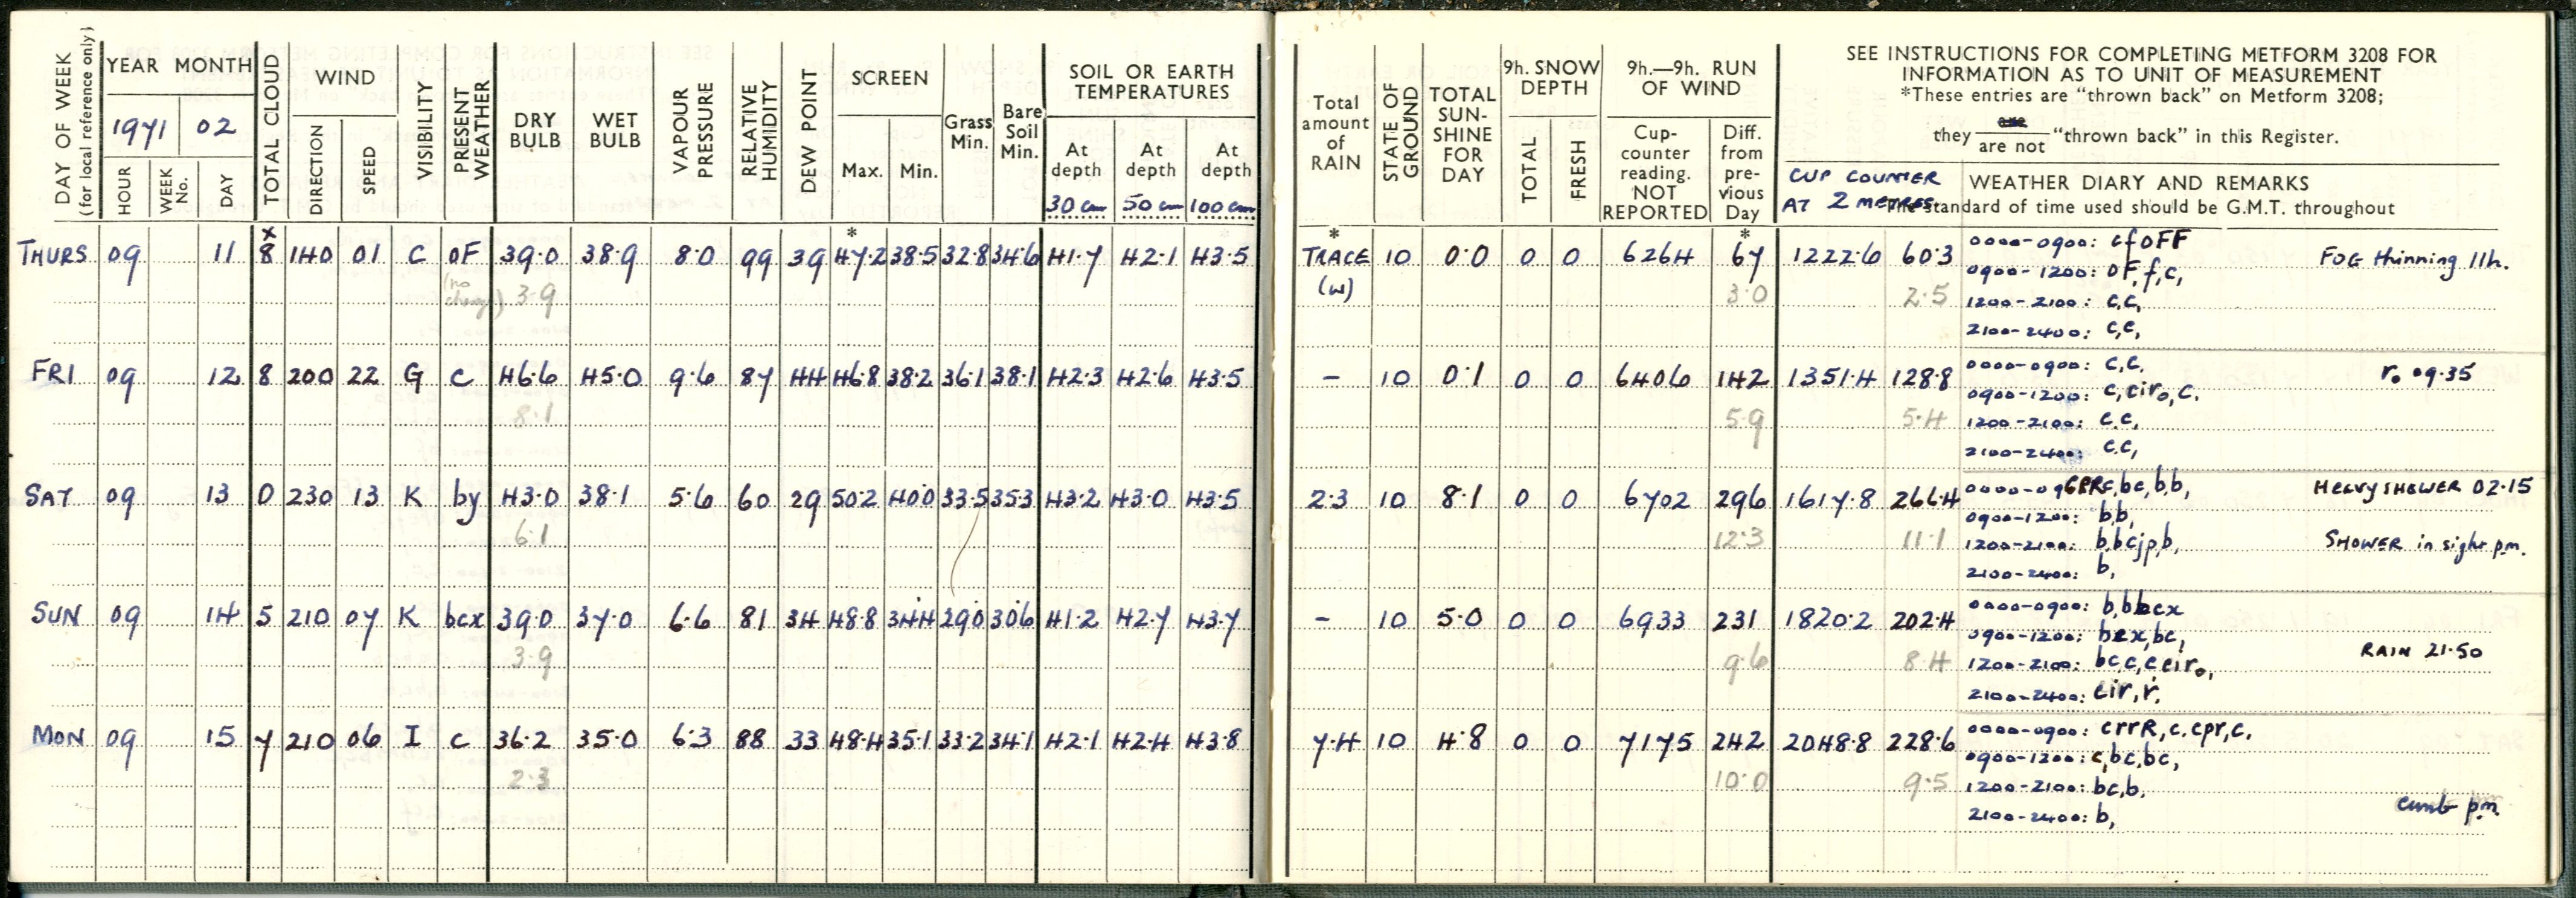 DAY OF WEEK (for local reference only)
YEAR MONTH
1971 02
HOUR WEEK No. DAY
TOTAL CLOUD
WIND
DIRECTION SPEED
VISIBILITY
PRESENT WEATHER
DRY BULB WET BULB
VAPOUR PRESSURE
RELATIVE HUMIDITY
DEW POINT
SCREEN
Max. Min.
Grass Min.
Bare Soil Min.
SOIL OR EARTH TEMPERATURES
At depth At depth At depth
30 cm 50 cm 100 cm
Total amount of RAIN
STATE OF GROUND
TOTAL SUN-SHINE FOR DAY
9h. SNOW DEPTH
TOTAL FRESH
9h.—9h. RUN OF WIND
Cup-counter reading. NOT REPORTED
Diff. from pre-vious Day
SEE INSTRUCTIONS FOR COMPLETING METFORM 3208 FOR
INFORMATION AS TO UNIT OF MEASUREMENT
*These entries are “thrown back” on Metform 3208;
they are / are not “thrown back” in this Register.
CUP COUNTER
AT 2 METRES
WEATHER DIARY AND REMARKS
The standard of time used should be G.M.T. throughout
THURS 09 11 x 8 140 01 C OF 39.0 38.9 8.0 99 39 * 47.2 38.5 32.8 34.6 41.7 42.1 43.5 * TRACE 10 0.0 0 0 6264 * 67 1222.6 60.3 0000-0900: cfoFF FOG thinning 11h.
(no change) 3.9 (w) 3.0 2.5 0900-1200: oF,f,c,
1200-2100: c,c,
2100-2400: c,c,
FRI 09 12 8 200 22 G c 46.6 45.0 9.6 87 44 46.8 38.2 36.1 38.1 42.3 42.6 43.5 – 10 0.1 0 0 6406 142 1351.4 128.8 0000-0900: c,c. r₀ 09.35
8.1 5.9 5.4 0900-1200: c,cir₀,c.
1200-2100: c.c,
2100-2400: c.c,
SAT 09 13 0 230 13 K by 43.0 38.1 5.6 60 29 50.2 40.0 33.5 35.3 43.2 43.0 43.5 2.3 10 8.1 0 0 6702 296 1617.8 266.4 0000-09 ,bc,b,b, HEAVY SHOWER 02.15
6.1 12.3 11.1 0900-1200: b,b,
1200-2100: b,bcjp,b, SHOWER in sight p.m.
2100-2400: b,
SUN 09 14 5 210 07 K bcx 39.0 37.0 6.6 81 34 48.8 34.4 29.0 30.6 41.2 42.7 43.7 – 10 5.0 0 0 6933 231 1820.2 202.4 0000-0900: b,bbcx
3.9 9.6 8.4 0900-1200: bcx,bc,
1200-2100: bc,c,ccir₀, RAIN 21.50
2100-2400: cir,r,
MON 09 15 7 210 06 I c 36.2 35.0 6.3 88 33 48.4 35.1 33.2 34.1 42.1 42.4 43.8 7.4 10 4.8 0 0 7175 242 2048.8 228.6 0000-0900: crrR,c.cpr,c.
2.3 10.0 9.5 0900-1200: c,bc,bc,
1200-2100: bc,b.
2100-2400: b, cumb p.m.